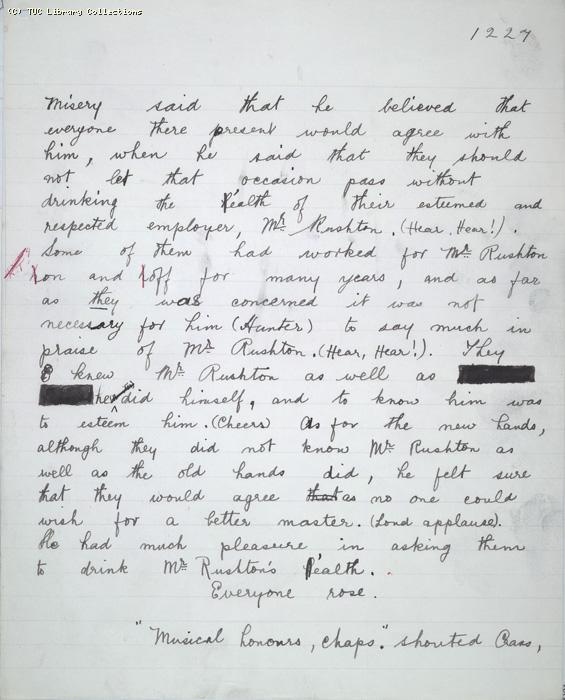 (C) TUC Library Collections
1227
Misery said that he believed that
everyone there present would agree with
him, when he said that they should
not let that occasion pass without
drinking the health of their esteemed and
respected employer, Mr Rushton. (Hear. Hear!).
Some of them had worked for Mr Rushton
on and off for many years, and as far
as they was concerned it was not
necessary for him (Hunter) to say much in
praise of Mr Rushton. (Hear, Hear!). They
knew Mr Rushton as well as
he did himself, and to know him was
to esteem him. (Cheers) As for the new hands,
although they did not know Mr Rushton as
well as the old hands did, he felt sure
that they would agree that as no one could
wish for a better master. (Loud applause).
He had much pleasure in asking them
to drink Mr Rushton's health.
Everyone rose.
"Musical honours, chaps." shouted Crass,